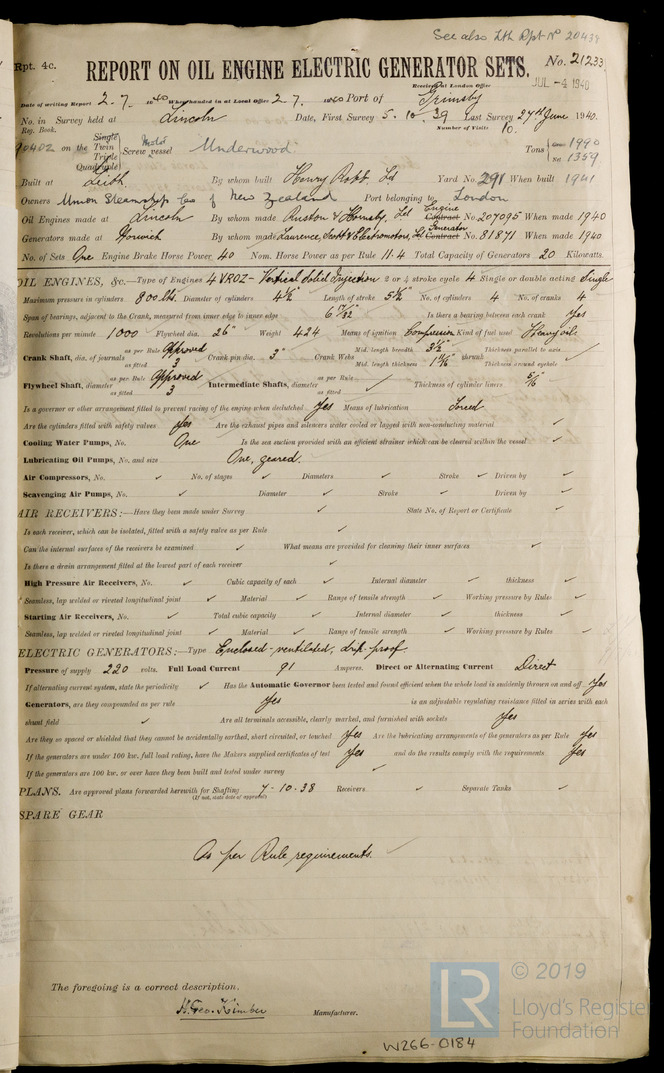 See also Lth Rpt No 20434
Rpt. 4c.
REPORT ON OIL ENGINE ELECTRIC GENERATOR SETS.
No. 21233
Received at London Office
JUL -4 1940
Date of writing Report 2.7. 1940 When handed in at Local Office 2.7. 1940 Port of Grimsby
No. in Survey held at Lincoln Date, First Survey 5.10.39 Last Survey 27th June 1940.
Reg. Book. Number of Visits 10.
90402 on the Single Twin Triple Quadruple Screw vessel Motor Underwood Tons Gross 1990 Net 1359
Built at Leith By whom built Henry Robb. Ld Yard No. 291 When built 1941
Owners Union Steamship Co of New Zealand Port belonging to London
Oil Engines made at Lincoln By whom made Ruston & Hornsby, Ld Engine Contract No. 207095 When made 1940
Generators made at Norwich By whom made Laurence, Scott & Electromotors, Ld Generator Contract No. 81871 When made 1940
No. of Sets One Engine Brake Horse Power 40 Nom. Horse Power as per Rule 11.4 Total Capacity of Generators 20 Kilowatts.
OIL ENGINES, &c.—Type of Engines 4 VROZ - Vertical Solid Injection 2 or 4 stroke cycle 4 Single or double acting Single
Maximum pressure in cylinders 800 lbs. Diameter of cylinders 4½" Length of stroke 5½" No. of cylinders 4 No. of cranks 4
Span of bearings, adjacent to the Crank, measured from inner edge to inner edge 6 7/32 Is there a bearing between each crank Yes
Revolutions per minute 1000 Flywheel dia. 26" Weight 424 Means of ignition Compression Kind of fuel used Heavy oil
Crank Shaft, dia. of journals as per Rule Approved as fitted 3 Crank pin dia. 3" Crank Webs Mid. length breadth 3½" Mid. length thickness 1 11/16" shrunk Thickness parallel to axis Thickness around eyehole ✓
Flywheel Shaft, diameter as per Rule Approved as fitted 3 Intermediate Shafts, diameter as per Rule as fitted ✓ Thickness of cylinder liners 5/16"
Is a governor or other arrangement fitted to prevent racing of the engine when declutched Yes Means of lubrication Forced
Are the cylinders fitted with safety valves Yes Are the exhaust pipes and silencers water cooled or lagged with non-conducting material ✓
Cooling Water Pumps, No. One Is the sea suction provided with an efficient strainer which can be cleared within the vessel ✓
Lubricating Oil Pumps, No. and size One, geared.
Air Compressors, No. ✓ No. of stages ✓ Diameters ✓ Stroke ✓ Driven by ✓
Scavenging Air Pumps, No. ✓ Diameter ✓ Stroke ✓ Driven by ✓
AIR RECEIVERS:—Have they been made under Survey ✓ State No. of Report or Certificate ✓
Is each receiver, which can be isolated, fitted with a safety valve as per Rule ✓
Can the internal surfaces of the receivers be examined ✓ What means are provided for cleaning their inner surfaces ✓
Is there a drain arrangement fitted at the lowest part of each receiver ✓
High Pressure Air Receivers, No. ✓ Cubic capacity of each ✓ Internal diameter ✓ thickness ✓
Seamless, lap welded or riveted longitudinal joint ✓ Material ✓ Range of tensile strength ✓ Working pressure by Rules ✓
Starting Air Receivers, No. ✓ Total cubic capacity ✓ Internal diameter ✓ thickness ✓
Seamless, lap welded or riveted longitudinal joint ✓ Material ✓ Range of tensile strength ✓ Working pressure by Rules ✓
ELECTRIC GENERATORS:—Type Enclosed-ventilated, drip-proof
Pressure of supply 220 volts. Full Load Current 91 Amperes. Direct or Alternating Current Direct
If alternating current system, state the periodicity ✓ Has the Automatic Governor been tested and found efficient when the whole load is suddenly thrown on and off Yes
Generators, are they compounded as per rule Yes is an adjustable regulating resistance fitted in series with each
shunt field ✓ Are all terminals accessible, clearly marked, and furnished with sockets Yes
Are they so spaced or shielded that they cannot be accidentally earthed, short circuited, or touched Yes Are the lubricating arrangements of the generators as per Rule Yes
If the generators are under 100 kw. full load rating, have the Makers supplied certificates of test Yes and do the results comply with the requirements Yes
If the generators are 100 kw. or over have they been built and tested under survey ✓
PLANS. Are approved plans forwarded herewith for Shafting 7-10-38 Receivers ✓ Separate Tanks ✓
(If not, state date of approval)
SPARE GEAR
As per Rule requirements.
The foregoing is a correct description,
H. Geo. Kimber Manufacturer.
W266-0184
LR © 2019
Lloyd's Register
Foundation